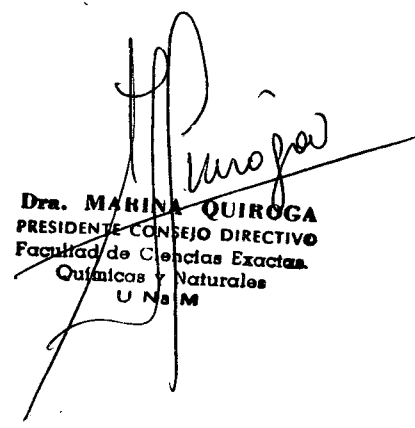 Dra. MARINA QUIROGA
PRESIDENTE CONSEJO DIRECTIVO
Facultad de Ciencias Exactas
Químicas y Naturales
U Na M